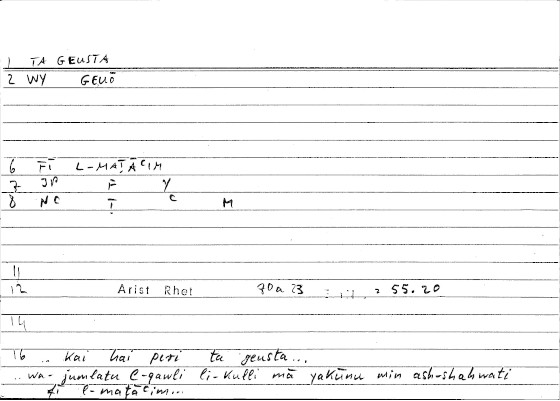 1 TA GEUSTA
2 WY GEUŌ
6 FĪ L-MAṬĀʿIM
7 JP F Y
8 NC Ṭ ʿ M
11
12 Arist Rhet 70a 23 55.20
14
16 .. kai hai peri ta geusta...
.. wa-jumlatu l-qawli li-kulli mā yakūnu min ash-shahwati
fī l-maṭāʿim...